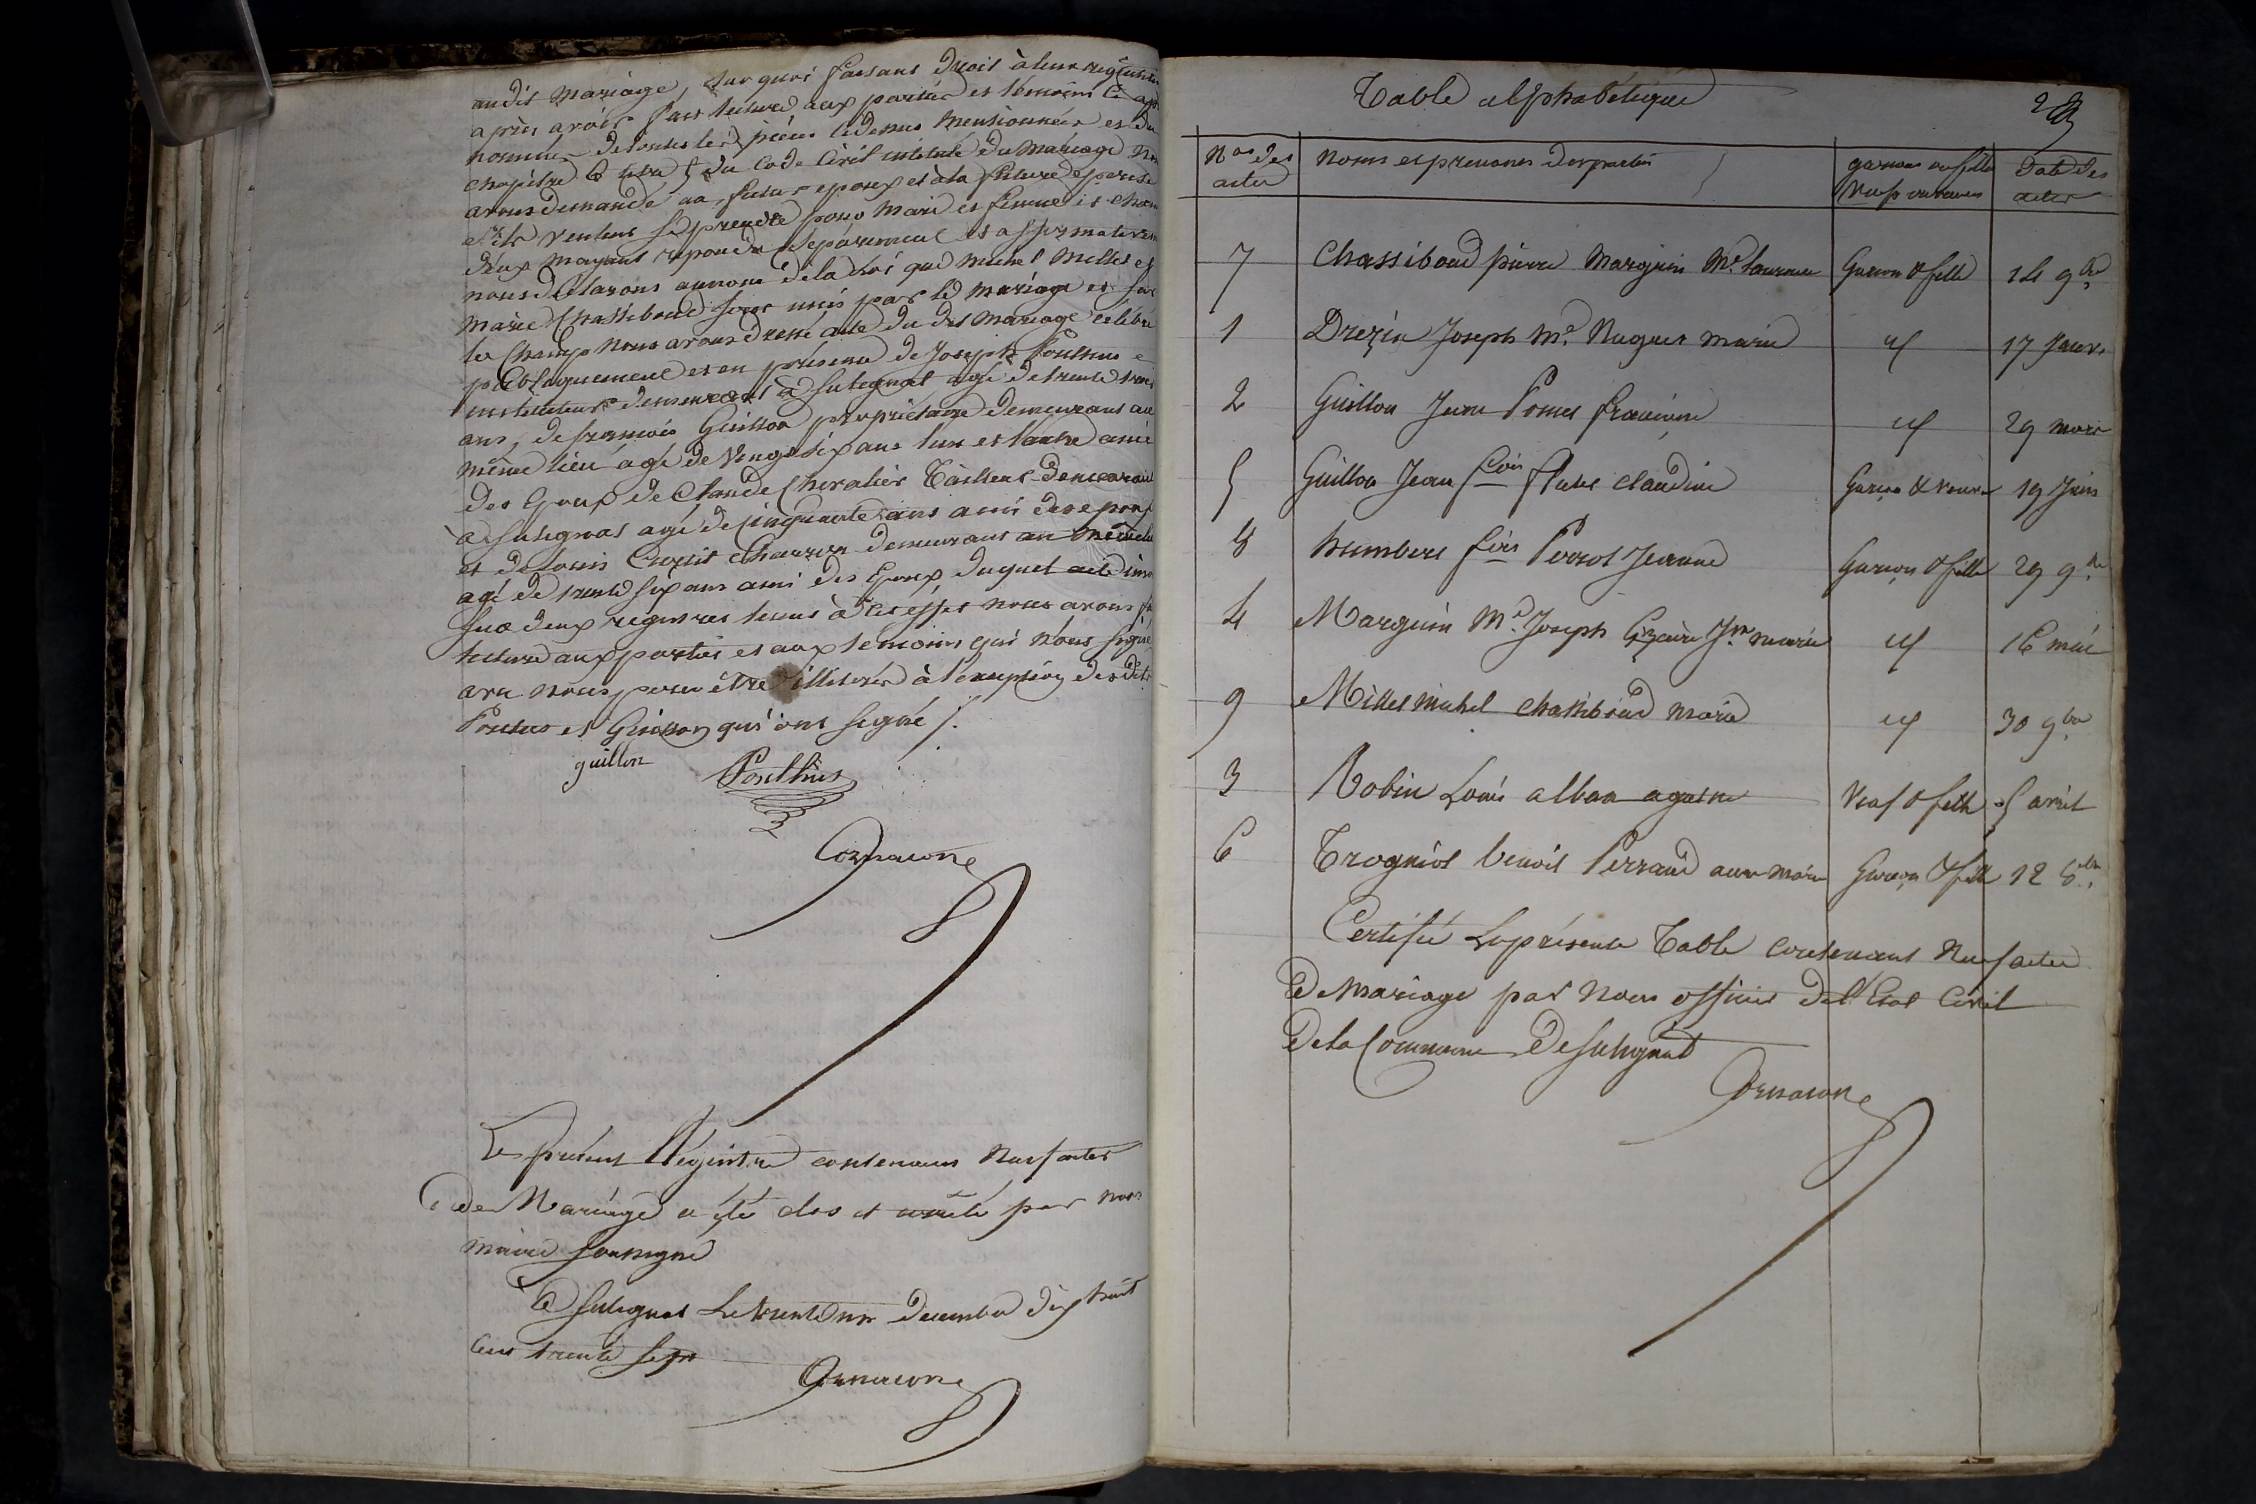 audit mariage, sur quoi faisant droit à leur réquisition
après avoir fait lecture aux parties et témoins ci
nommés de toutes les pièces cidessus mentionnées et du
chapitre 6 titre 5 du Code Civil intitulé du Mariage Nous
avons demandé au futur epoux et à la future epouse
s'ils veulent se prendre pour mari et femme et chacun
d'eux ayant repondu séparement et affirmativement
nous déclarons au nom de la Loi que Michel Millet et
Marie Chassiboud sont unis par le mariage et sur
les Champ nous avons dressé acte du dit Mariage célébré
publiquement et en présence de Joseph Ponthus
instituteur demeurant à Sulignat agé de trente trois
ans, de françois Guillon propriétaire demeurant au
même lieu agé de vingt six ans l'un et l'autre amis
des Epoux de Claude Chevalier Tailleur demeurant
à Sulignat agé de cinquante ans ami des epoux
et de Louis Charron demeurant au même lieu
agé de trente six ans ami des Epoux duquel acte
sur deux registres tenus à cet effet nous avons
lecture aux parties et aux temoins qui n'ont signé
avec nous pour être illiterés à l'exception des dits
Ponthus et Guillon qui ont signé /.
guillon
Ponthus
Cornaconne
Le présent Régistre contenant Neuf actes
de Mariage a été clos et arrêté par nous
maire soussigné
à Sulignat Le trente un decembre dix huit
cent trente sept
Cornaconne
Table alphabétique
Nos des noms et prenoms des parties garçons ou filles Date des
actes veufs ou veuves actes
7 Chassiboud pierre Marguin Me. Laurence Garçon & fille 14 9bre
1 Drezin Joseph Me. Nugues marie id 17 Janv.
2 Guillon Jean Pomet françoise id 29 mars
5 Guillon Jean fcois claudine Garçon & veuve 19 Juin
8 humbert fcois Perrot Jeanne Garçon & fille 29 9bre
4 Marguin Me. Joseph Jne marie id 16 mai
9 Millet michel chassiboud marie id 30 9bre
3 Robin Louis alban agathe Veuf & fille 5 avril
6 Trogniot benoit Perraud marie Garçon & fille 12 8bre
Certifié La présente Table contenant Neuf actes
de Mariage par Nous officier de l'Etat Civil
de la Commune de Sulignat
Cornaconne